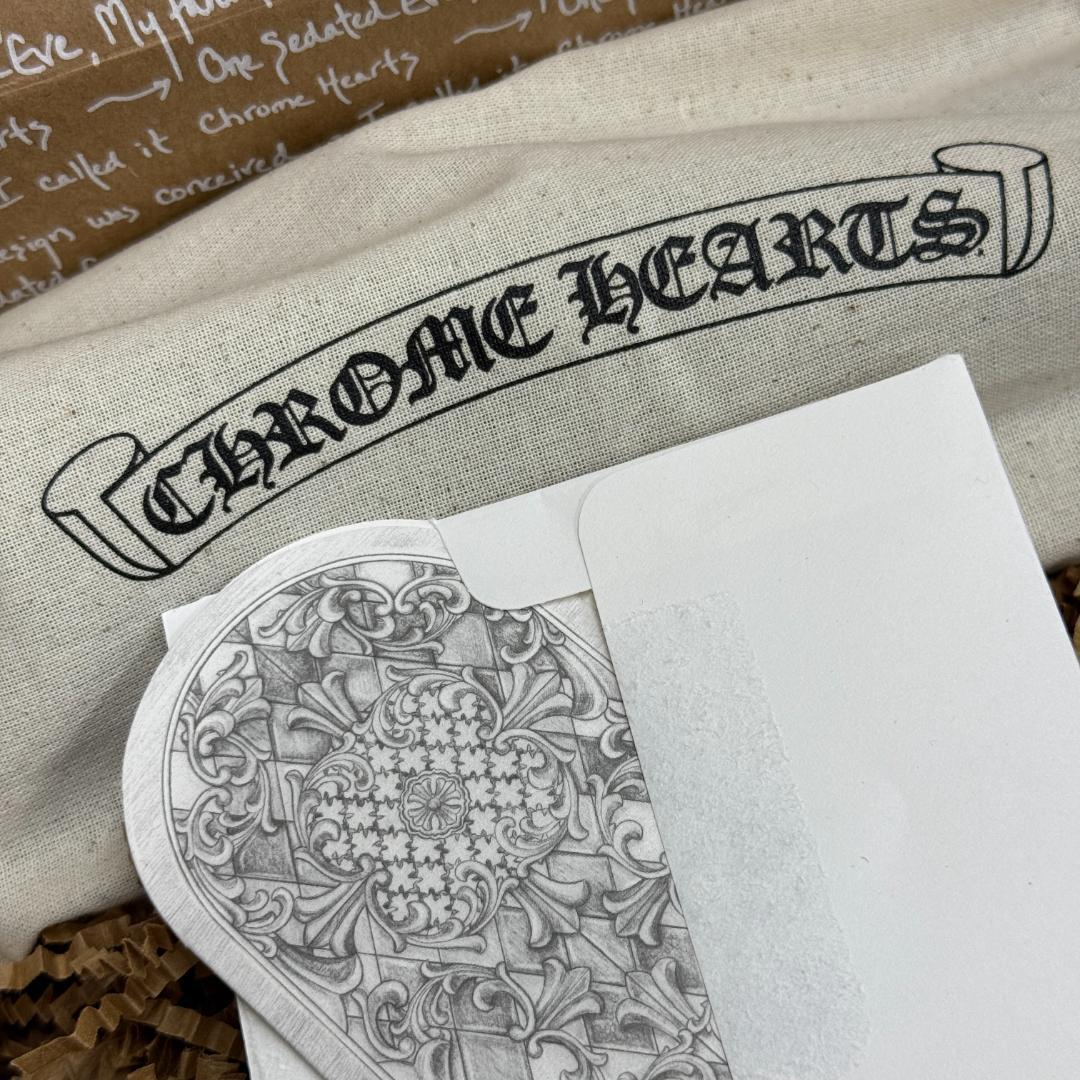 Eve, My
One Sedated Eve
rts → One
I called it Chrome Hearts
esign was conceived I
CHROME HEARTS